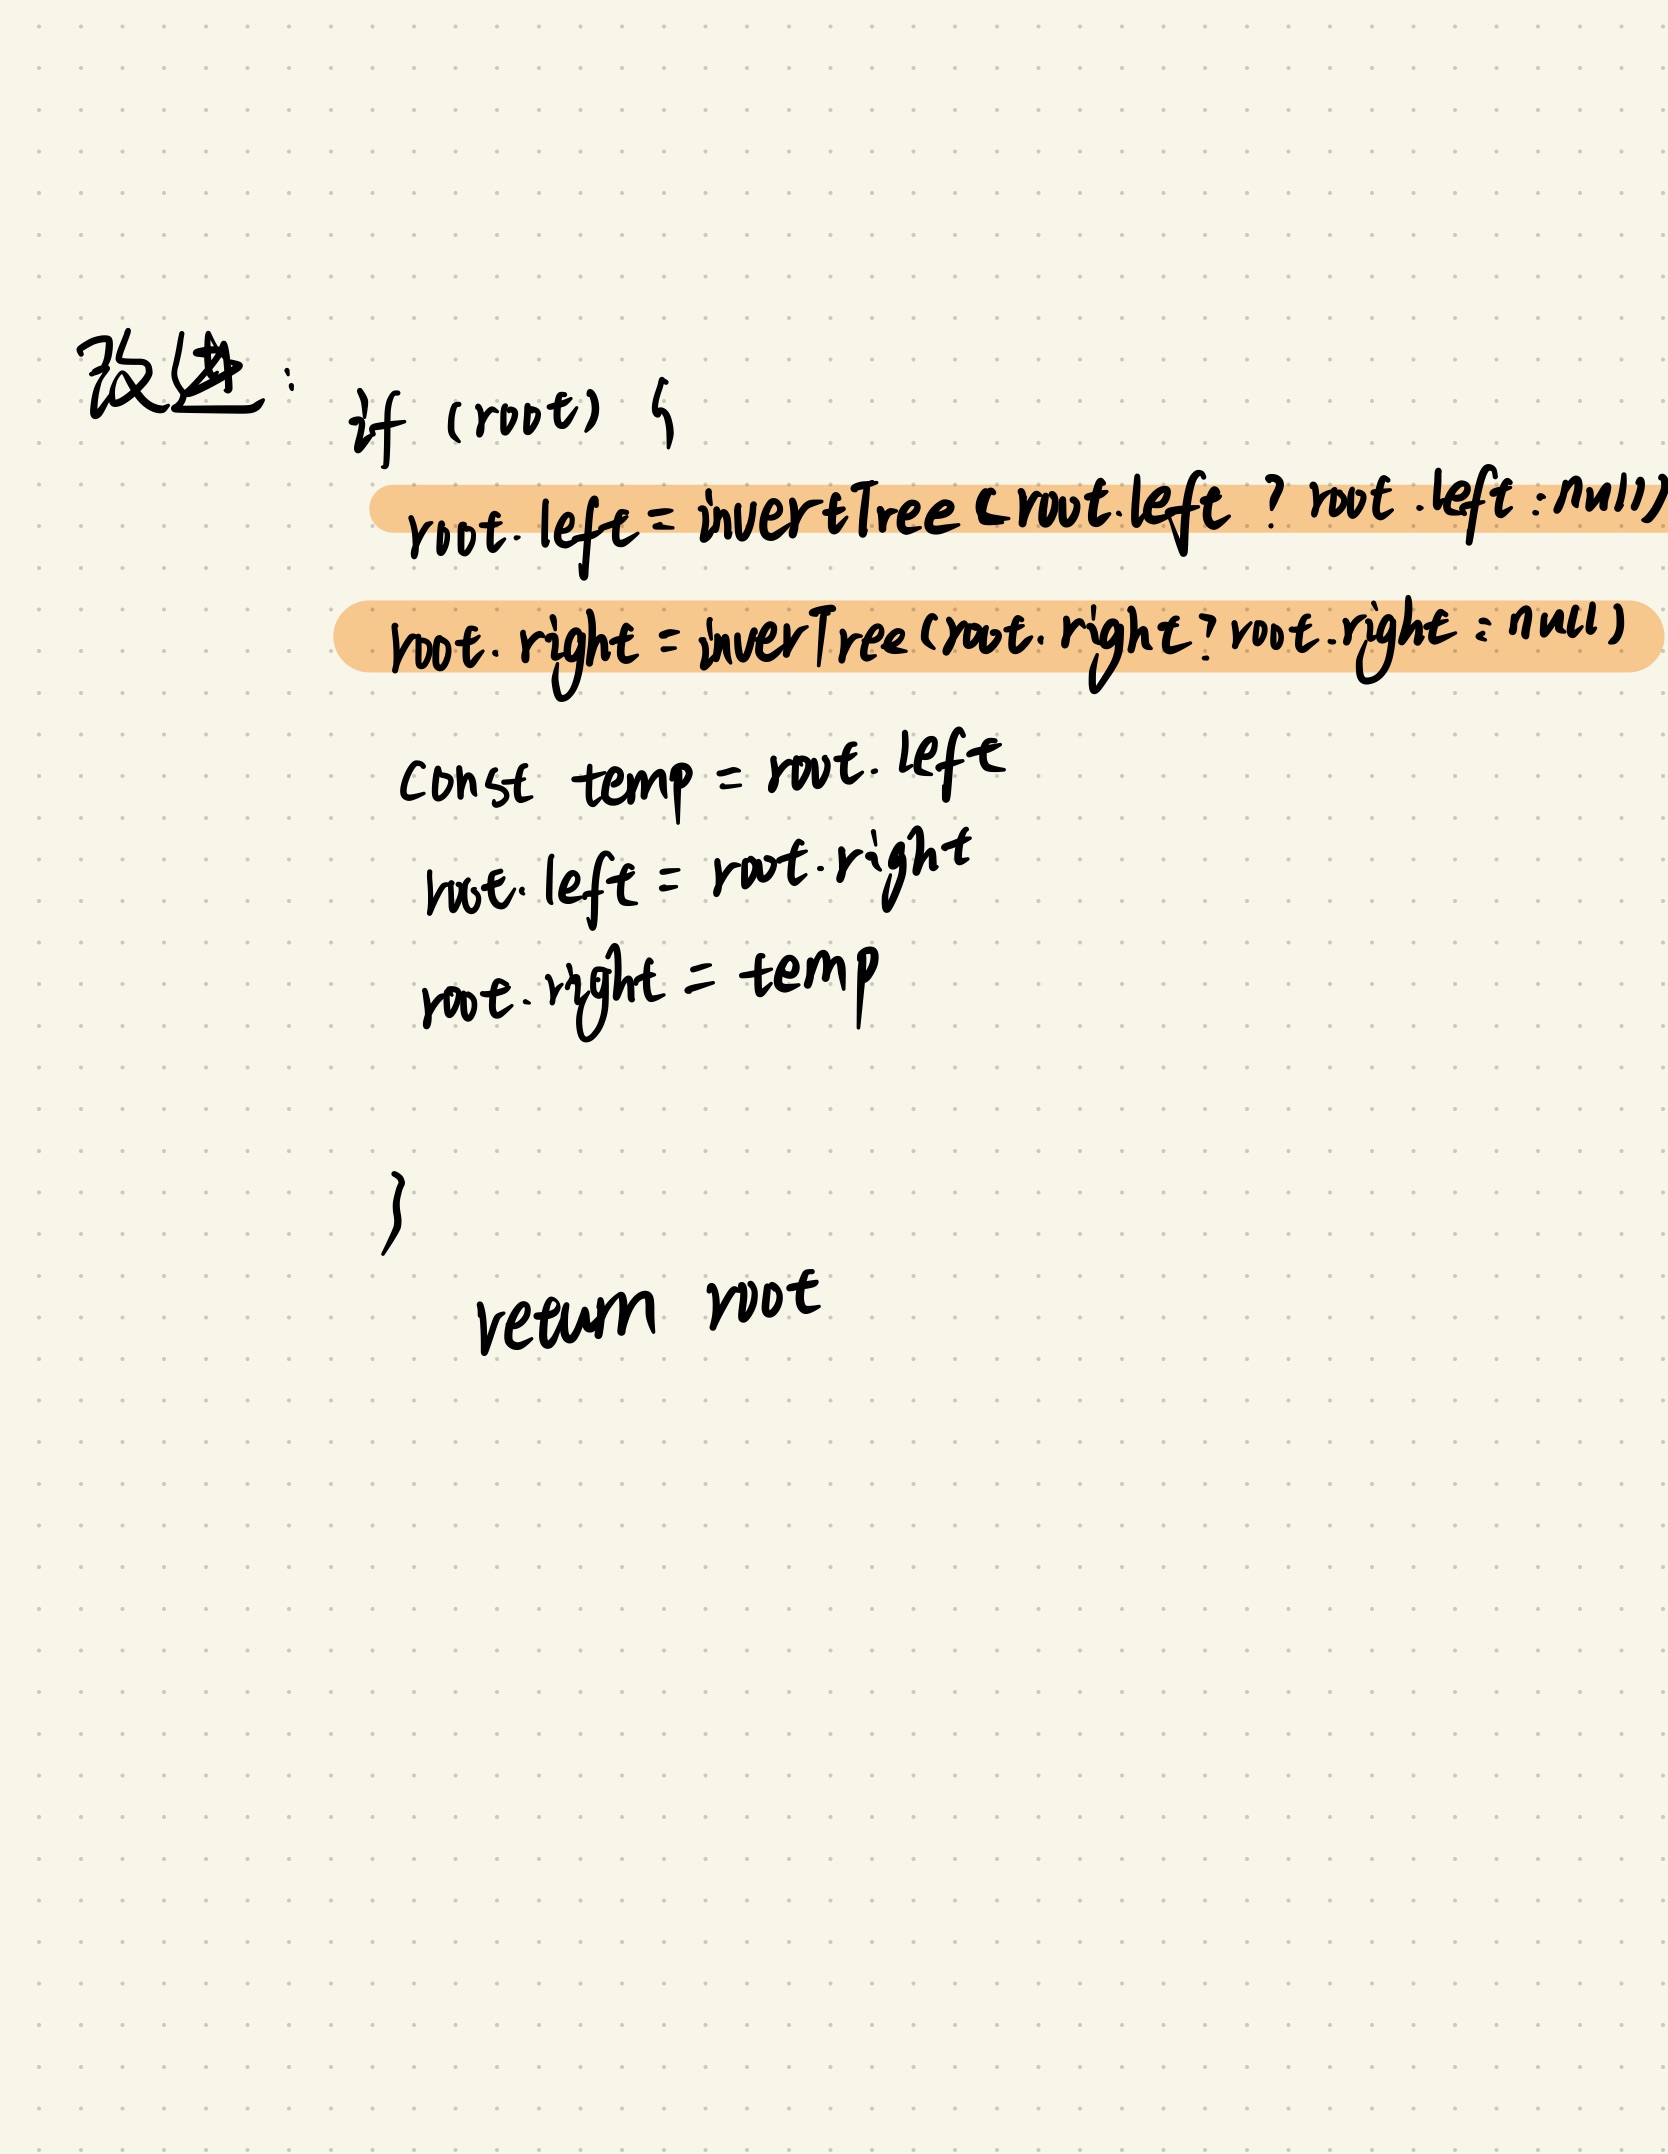 改进:
if (root) {
root.left = invertTree (root.left ? root.left : null)
root.right = inverTree (root.right ? root.right : null)
const temp = root.left
root.left = root.right
root.right = temp
}
return root